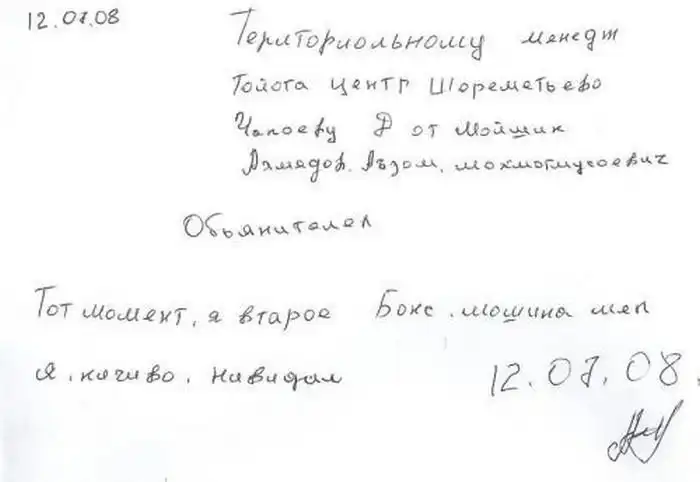 12.07.08
Териториольному менедж
Тойота центр Шореметьево
Чапоеву Д от Мойшик
Ахмедов. Аъзом. мохмотмусоевич
Обьянителел
Тот момент, я втарое Бокс. мошина меп
я. ничиво. Нивидал
12.07.08.